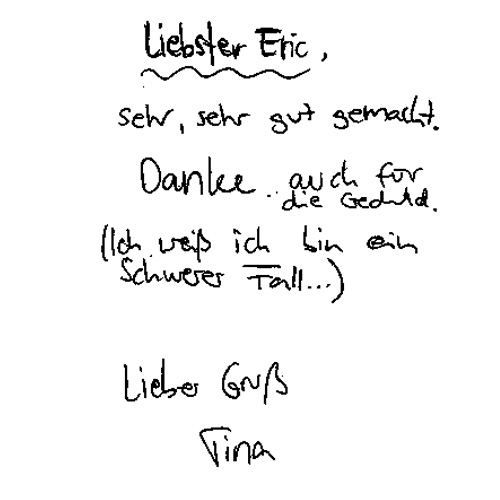 Liebster Eric,
sehr, sehr gut gemacht.
Danke auch für
die Geduld.
(Ich weiß ich bin ein
Schwerer Fall...)
Lieber Gruß
Tina